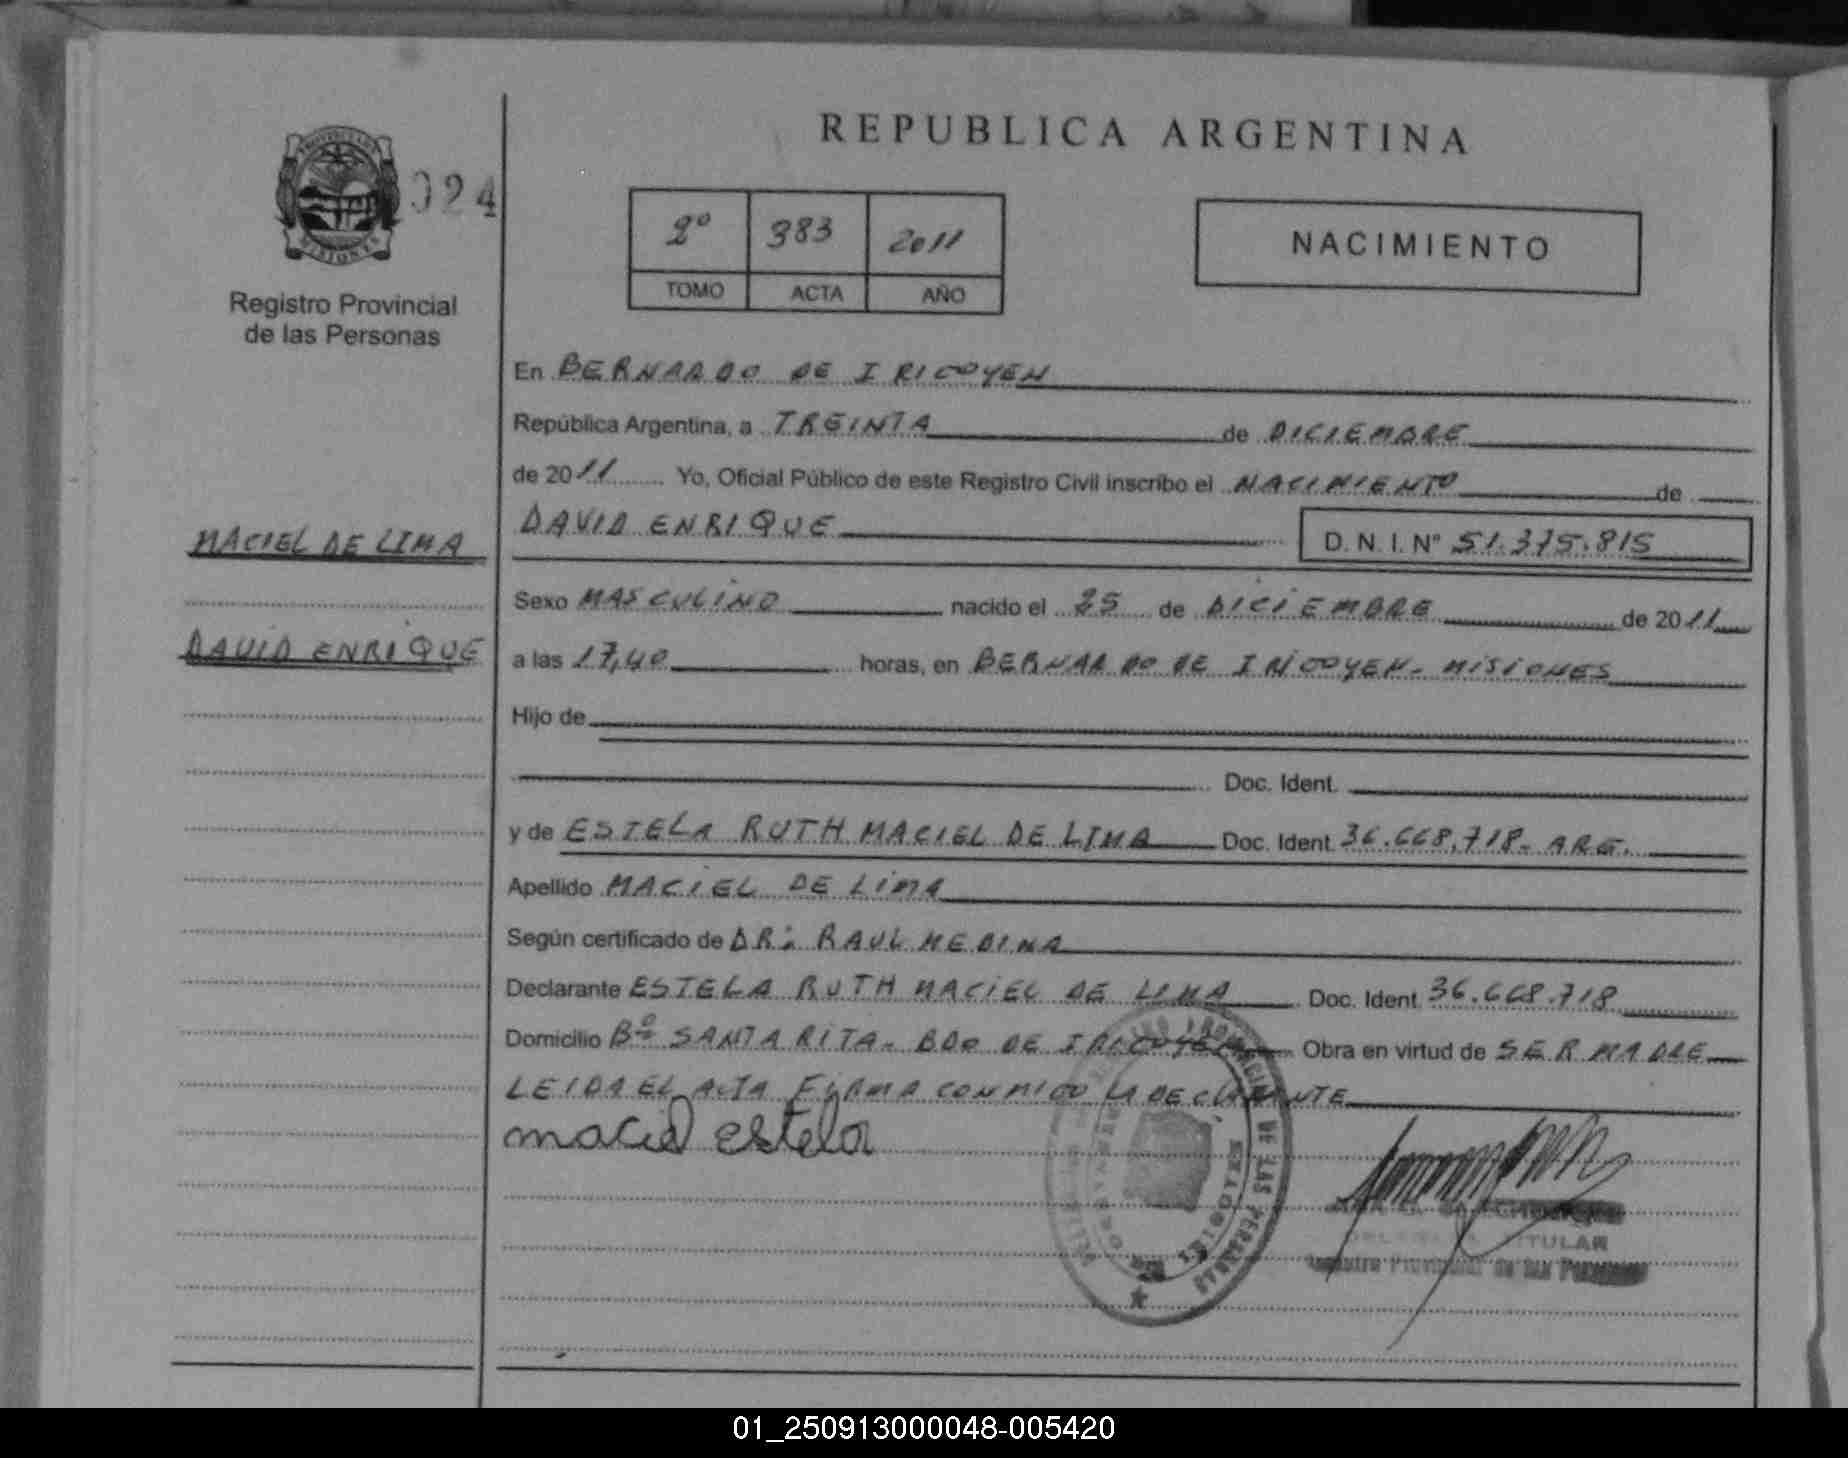 REPUBLICA ARGENTINA
PROVINCIA DE
MISIONES
024
2º 383 2011
TOMO ACTA AÑO
NACIMIENTO
Registro Provincial
de las Personas
En BERNARDO DE IRIGOYEN
República Argentina, a TREINTA de DICIEMBRE
de 2011 Yo, Oficial Público de este Registro Civil inscribo el NACIMIENTO de
DAVID ENRIQUE D. N. I. N° 51.375.815
MACIEL DE LIMA
DAVID ENRIQUE
Sexo MASCULINO nacido el 25 de DICIEMBRE de 2011
a las 17,40 horas, en BERNARDO DE IRIGOYEN - MISIONES
Hijo de
Doc. Ident.
y de ESTELA RUTH MACIEL DE LIMA Doc. Ident. 36.668.718- ARG.
Apellido MACIEL DE LIMA
Según certificado de DR: RAUL MEDINA
Declarante ESTELA RUTH MACIEL DE LIMA Doc. Ident. 36.668.718
Domicilio Bº SANTA RITA - BDO DE IRIGOYEN Obra en virtud de SER MADRE
LEIDA EL ACTA FIRMA CONMIGO LA DECLARANTE
maciel estela
PROVINCIAL DE LAS PERSONAS
TITULAR
Registro Provincial de las Personas
01_250913000048-005420